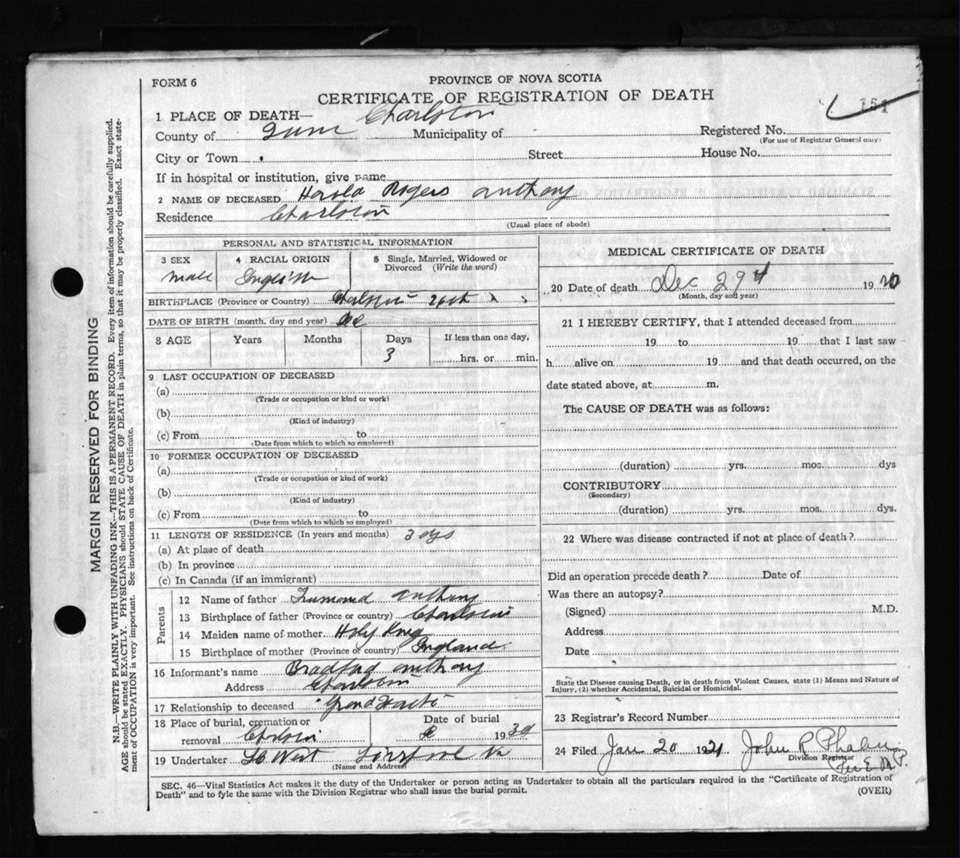 FORM 6
PROVINCE OF NOVA SCOTIA
CERTIFICATE OF REGISTRATION OF DEATH
151
1 PLACE OF DEATH— Charleston
County of Municipality of Registered No.
(For use of Registrar General only)
City or Town Street House No.
If in hospital or institution, give name
2 NAME OF DECEASED Harold Rogers Anthony
Residence Charleston
(Usual place of abode)
MARGIN RESERVED FOR BINDING
N.B.—WRITE PLAINLY WITH UNFADING INK—THIS IS A PERMANENT RECORD. Every item of information should be carefully supplied.
AGE should be stated EXACTLY. PHYSICIANS should STATE CAUSE OF DEATH in plain terms, so that it may be properly classified. Exact state-
ment of OCCUPATION is very important. See instructions on back of Certificate.
PERSONAL AND STATISTICAL INFORMATION
3 SEX 4 RACIAL ORIGIN 5 Single, Married, Widowed or
Divorced (Write the word)
male English
BIRTHPLACE (Province or Country) Charleston 26th
DATE OF BIRTH (month, day and year) Dec
8 AGE Years Months Days If less than one day,
3 hrs. or min.
9 LAST OCCUPATION OF DECEASED
(a)
(Trade or occupation or kind or work)
(b)
(Kind of industry)
(c) From to
(Date from which to which so employed)
10 FORMER OCCUPATION OF DECEASED
(a)
(Trade or occupation or kind of work)
(b)
(Kind of industry)
(c) From to
(Date from which to which so employed)
11 LENGTH OF RESIDENCE (In years and months) 3 dys
(a) At place of death
(b) In province
(c) In Canada (if an immigrant)
Parents
12 Name of father Anthony
13 Birthplace of father (Province or country) Charleston
14 Maiden name of mother
15 Birthplace of mother (Province or country) England
16 Informant's name Bradford Anthony
Address Charleston
17 Relationship to deceased
18 Place of burial, cremation or Date of burial
removal Charleston 1930
19 Undertaker West Liverpool
(Name and Address)
MEDICAL CERTIFICATE OF DEATH
20 Date of death Dec 29 19
(Month, day and year)
21 I HEREBY CERTIFY, that I attended deceased from
19 to 19 that I last saw
h alive on 19 and that death occurred, on the
date stated above, at m.
The CAUSE OF DEATH was as follows:
(duration) yrs. mos. dys
CONTRIBUTORY
(Secondary)
(duration) yrs. mos. dys.
22 Where was disease contracted if not at place of death?
Did an operation precede death? Date of
Was there an autopsy?
(Signed) M.D.
Address
Date
State the Disease causing Death, or in death from Violent Causes, state (1) Means and Nature of
Injury, (2) whether Accidental, Suicidal or Homicidal.
23 Registrar's Record Number
24 Filed Jan 20 19 John R
Division Registrar
SEC. 46—Vital Statistics Act makes it the duty of the Undertaker or person acting as Undertaker to obtain all the particulars required in the "Certificate of Registration of
Death" and to fyle the same with the Division Registrar who shall issue the burial permit. (OVER)